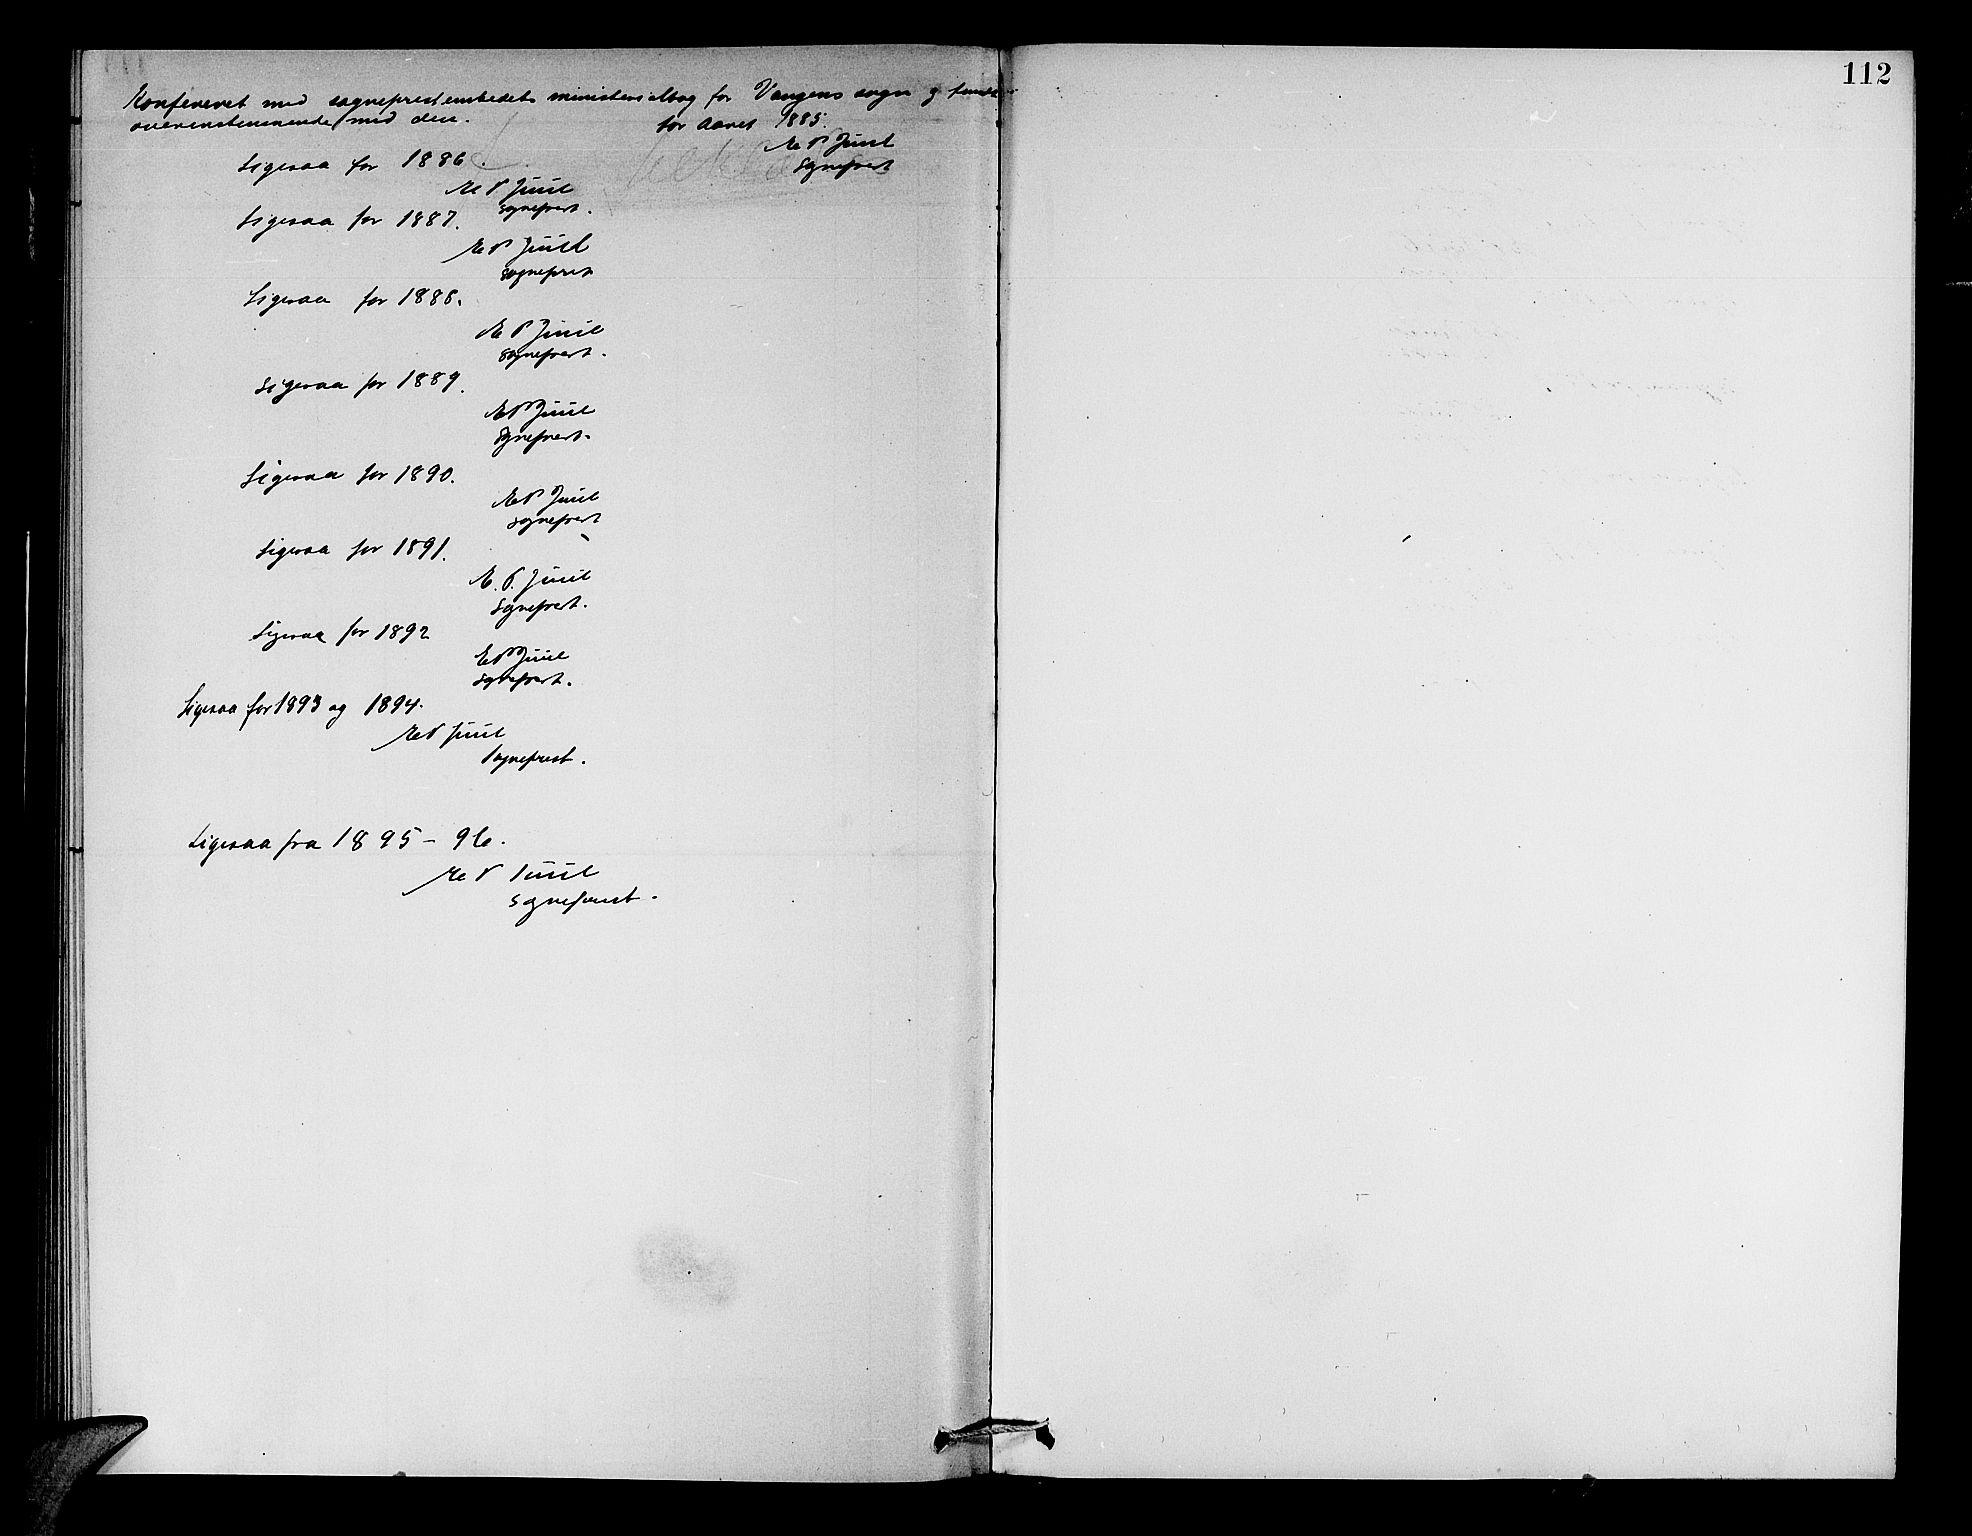 112
Konfereret med sogneprestembedets ministerialbog for Vangens sogn og fundet
overensstemmende med den. for Aaret 1885.
E P Juul
Sogneprest
Ligesaa for 1886.
E P Juul
sogneprest.
Ligesaa for 1887.
E P Juul
sogneprest
Ligesaa for 1888.
E P Juul
sogneprest.
Ligesaa for 1889.
E P Juul
sogneprest.
Ligesaa for 1890.
E P Juul
sogneprest
Ligesaa for 1891.
E. P. Juul
Sogneprest.
Ligesaa for 1892
E P Juul
sogneprest.
Ligesaa for 1893 og 1894.
E P Juul
sogneprest.
Ligesaa fra 1895 - 96.
E P Juul
sogneprest.